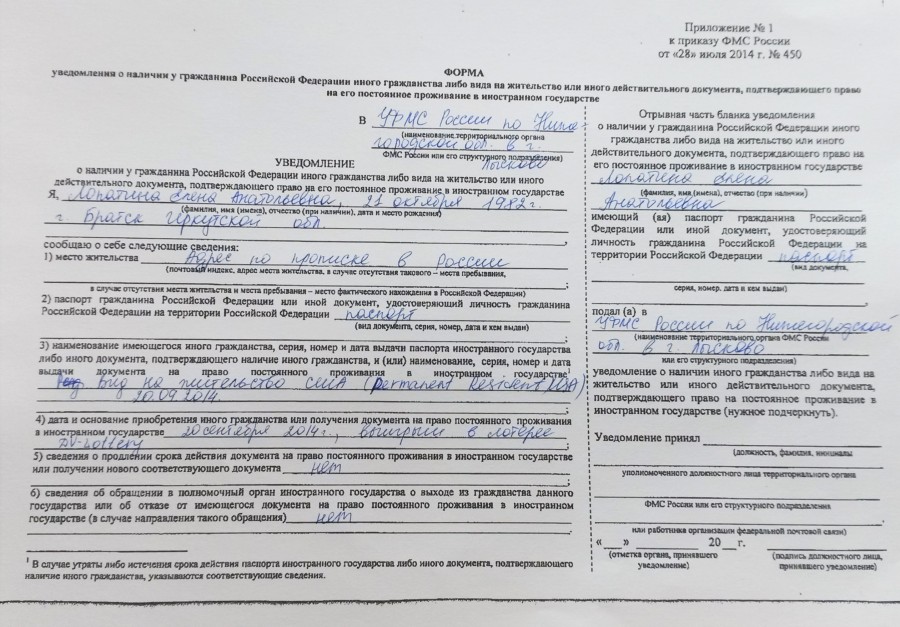 Приложение № 1
к приказу ФМС России
от «28» июля 2014 г. № 450
ФОРМА
уведомления о наличии у гражданина Российской Федерации иного гражданства либо вида на жительство или иного действительного документа, подтверждающего право
на его постоянное проживание в иностранном государстве
В УФМС России по Ниже-
(наименование территориального органа
городской обл. в г.
ФМС России или его структурного подразделения)
Лысково
УВЕДОМЛЕНИЕ
о наличии у гражданина Российской Федерации иного гражданства либо вида на жительство или иного
действительного документа, подтверждающего право на его постоянное проживание в иностранном государстве
Я, Лопатина Елена Анатольевна, 21 октября 1982г.
(фамилия, имя (имена), отчество (при наличии), дата и место рождения)
г. Братск Иркутской обл.
сообщаю о себе следующие сведения:
1) место жительства Адрес по прописке в России
(почтовый индекс, адрес места жительства, в случае отсутствия такового – места пребывания,
в случае отсутствия места жительства и места пребывания – место фактического нахождения в Российской Федерации)
2) паспорт гражданина Российской Федерации или иной документ, удостоверяющий личность гражданина
Российской Федерации на территории Российской Федерации паспорт
(вид документа, серия, номер, дата и кем выдан)
3) наименование имеющегося иного гражданства, серия, номер и дата выдачи паспорта иностранного государства
либо иного документа, подтверждающего наличие иного гражданства, и (или) наименование, серия, номер и дата
выдачи документа на право постоянного проживания в иностранном государстве¹
Вид на жительство США (Permanent Resident, USA)
20.09.2014
4) дата и основание приобретения иного гражданства или получения документа на право постоянного проживания
в иностранном государстве 20 сентября 2014г., выигрыш в лотерее
DV-Lottery
5) сведения о продлении срока действия документа на право постоянного проживания в иностранном государстве
или получении нового соответствующего документа нет
6) сведения об обращении в полномочный орган иностранного государства о выходе из гражданства данного
государства или об отказе от имеющегося документа на право постоянного проживания в иностранном
государстве (в случае направления такого обращения) нет
¹ В случае утраты либо истечения срока действия паспорта иностранного государства либо иного документа, подтверждающего
наличие иного гражданства, указываются соответствующие сведения.
Отрывная часть бланка уведомления
о наличии у гражданина Российской Федерации иного
гражданства либо вида на жительство или иного
действительного документа, подтверждающего право на
его постоянное проживание в иностранном государстве
Лопатина Елена
(фамилия, имя (имена), отчество (при наличии)
Анатольевна
имеющий (ая) паспорт гражданина Российской
Федерации или иной документ, удостоверяющий
личность гражданина Российской Федерации на
территории Российской Федерации паспорт
(вид документа,
серия, номер, дата и кем выдан)
подал (а) в
УФМС России по Нижегородской
(наименование территориального органа ФМС России
обл. в г. Лысково
или его структурного подразделения)
уведомление о наличии иного гражданства либо вида на
жительство или иного действительного документа,
подтверждающего право на постоянное проживание в
иностранном государстве (нужное подчеркнуть).
Уведомление принял
(должность, фамилия, инициалы
уполномоченного должностного лица территориального органа
ФМС России или его структурного подразделения
или работника организации федеральной почтовой связи)
« » 20 г.
(отметка органа, принявшего
уведомление)
(подпись должностного лица,
принявшего уведомление)